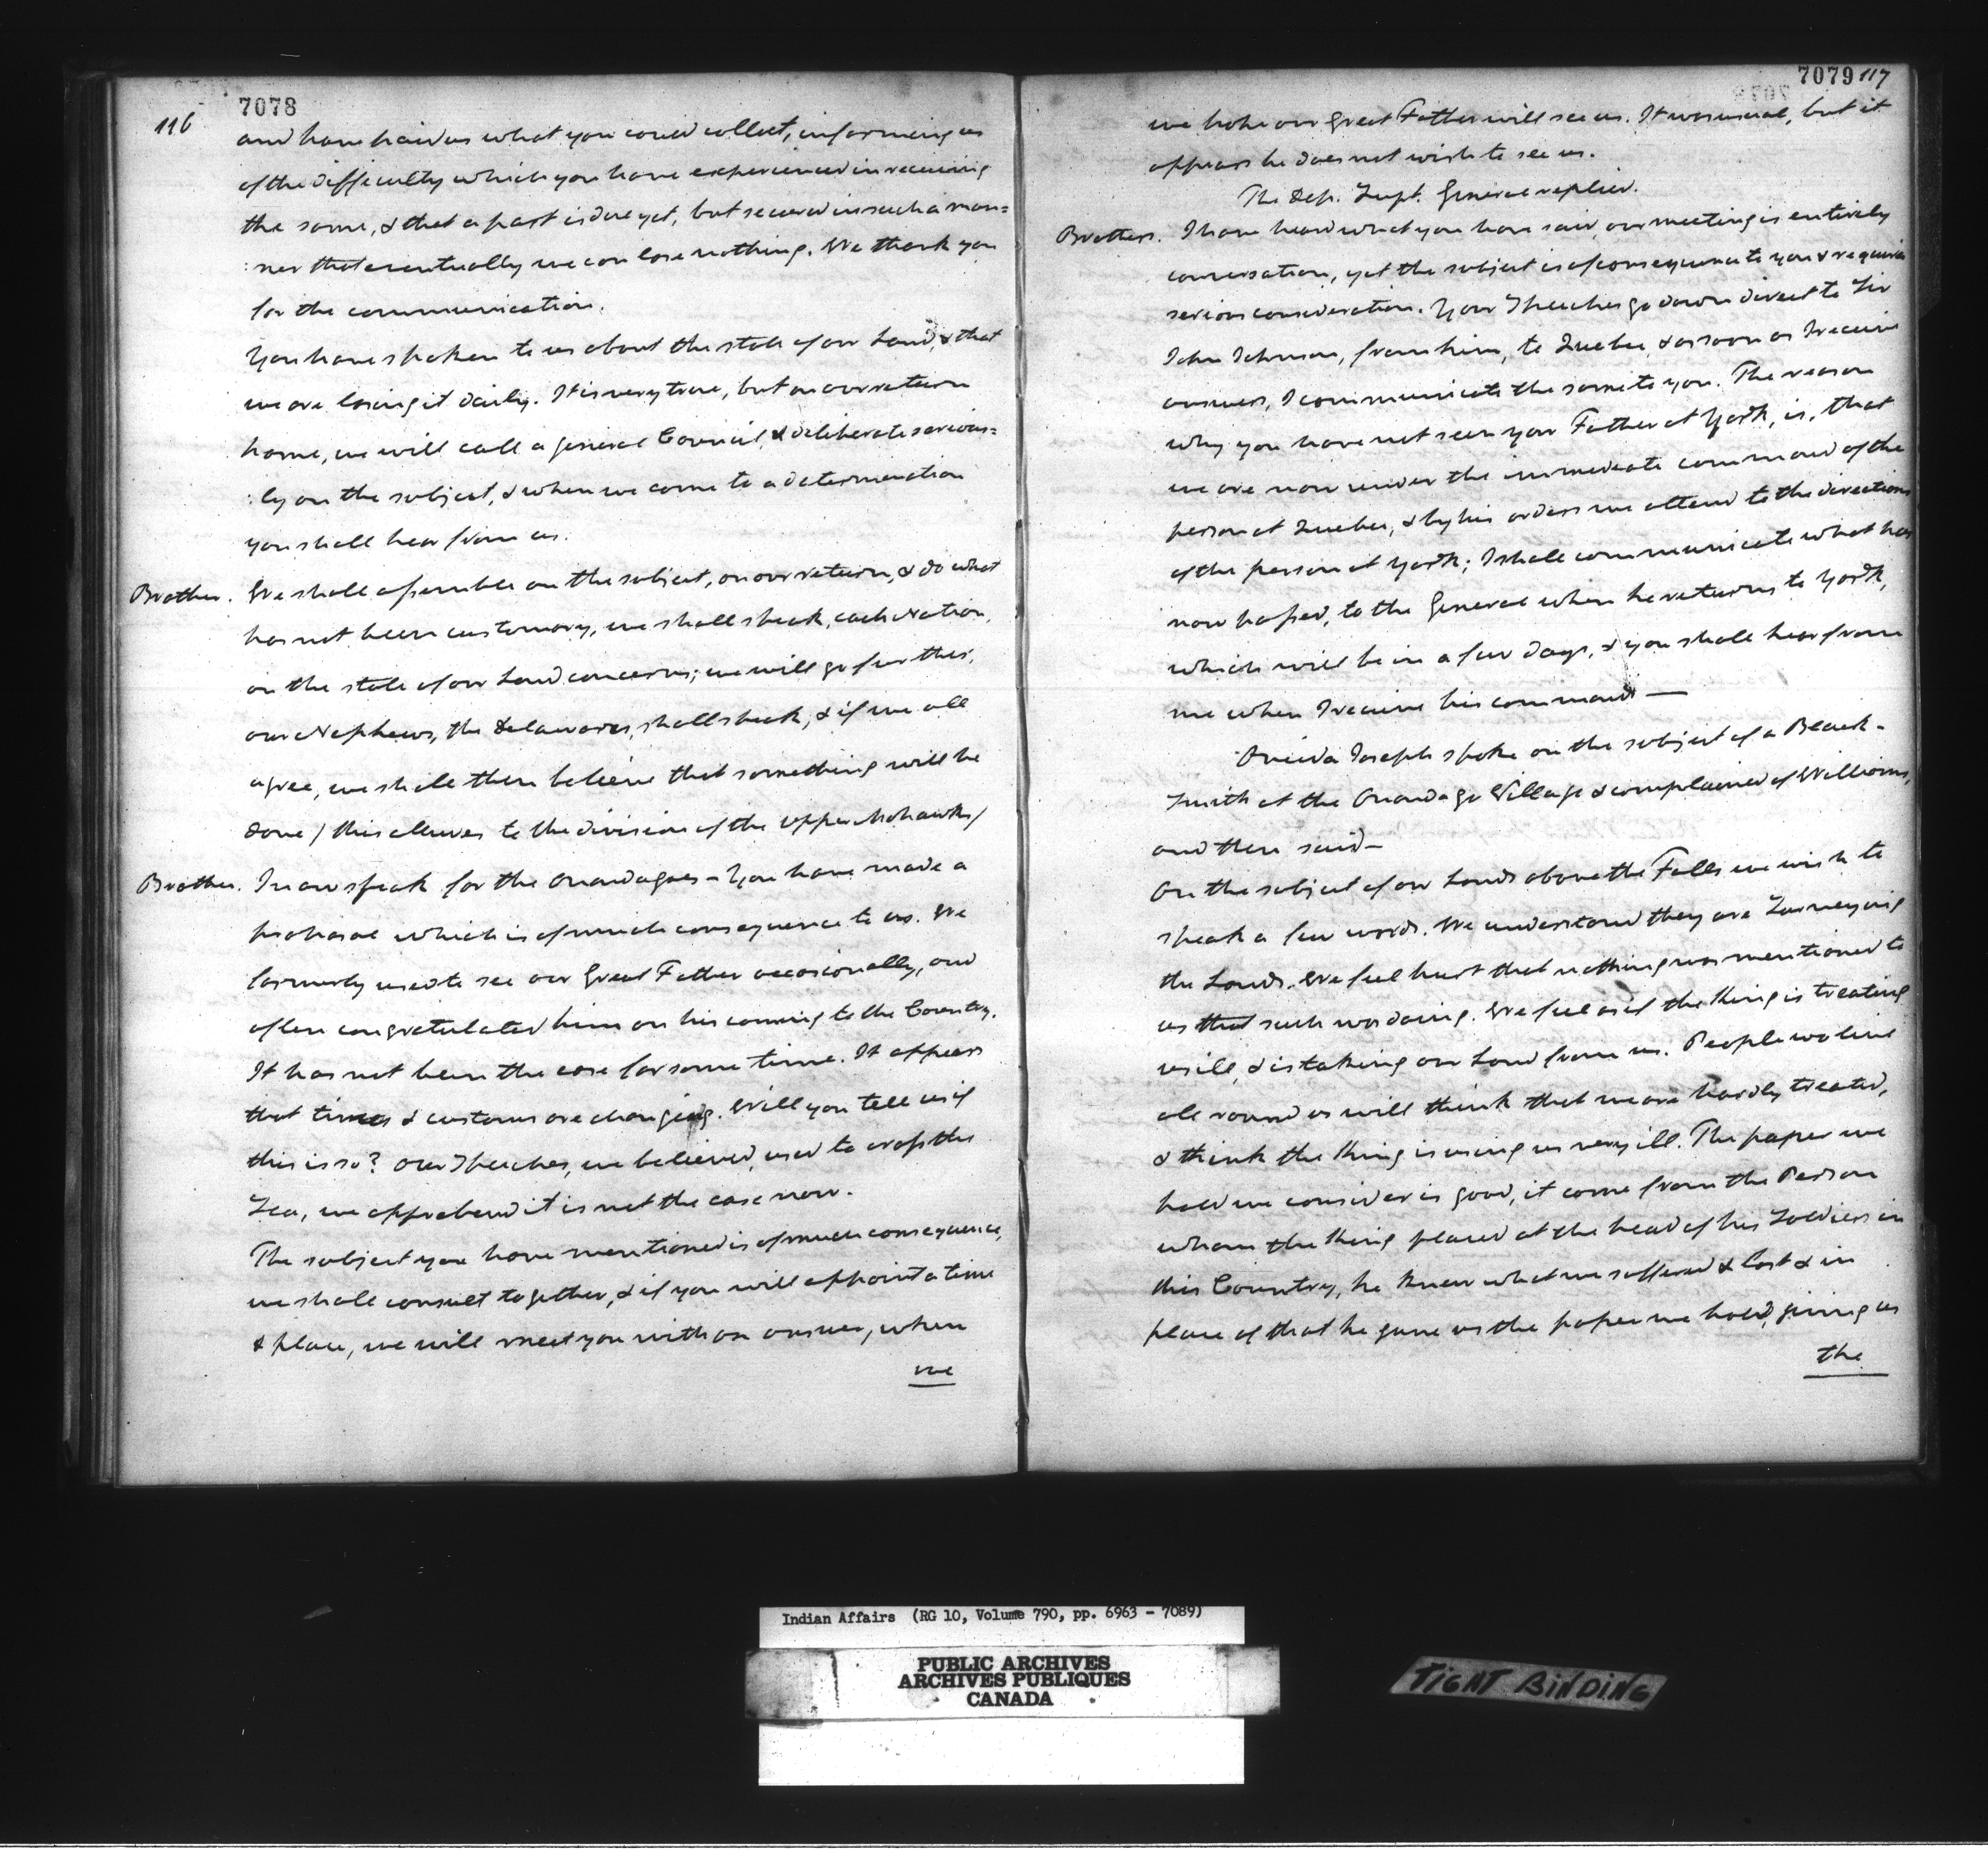 116
7078
and have paid us what you could collect, informing us
of the difficulty which you have experienced in receiving
the same, & that a part is due yet, but secured in such a man=
:ner that eventually we can lose nothing. We thank you
for the communication.
You have spoken to us about the state of our Land, & that
we are losing it daily. It is very true, but on our return
home, we will call a general Council, & deliberate serious=
:ly on the subject, & when we come to a determination
you shall hear from us.
Brother. We shall assemble on the subject, on our return, & do what
has not been customary, we shall speak, each Nation,
on the state of our Land concerns; we will go further,
our Nephews, the Delawares, shall speak, & if we all
agree, we shall then believe that something will be
done / this alludes to the division of the upper Mohawks /
Brother. I now speak for the Onondagoes - You have made a
proposal which is of much consequence to us. We
formerly used to see our Great Father occasionally, and
often congratulated him on his coming to the Country.
It has not been the case for some time. It appears
that times & customs are changing. Will you tell us if
this is so? Our Speeches, we believed, used to cross the
Sea, we apprehend it is not the case now.
The subject you have mentioned is of much consequence,
we shall consult together, & if you will appoint a time
& place, we will meet you with an answer, when
we
7079 117
we hope our Great Father will see us. It was usual, but it
appears he does not wish to see us.
The Dep. Supt. General replied.
Brothers. I have heard what you have said, our meeting is entirely
conversation, yet the subject is of consequence to you & requires
serious consideration. Your Speeches go down direct to Sir
John Johnson, from him, to Quebec, & as soon as I receive
answers, I communicate the same to you. The reason
why you have not seen your Father at York, is, that
we are now under the immediate command of the
person at Quebec, & by his orders we attend to the directions
of the person at York; I shall communicate what has
now passed, to the General when he returns to York,
which will be in a few days, & you shall hear from
me when I receive his commands —
Oneida Joseph spoke on the subject of a Black-
Smith at the Onondago Village & complained of Williams,
and then said—
On the subject of our Lands above the Falls we wish to
speak a few words. We understand they are Surveying
the Lands. We feel hurt that nothing was mentioned to
us that such was doing. We feel as if the King is treating
us ill, & is taking our Land from us. People who live
all round us will think that we are hardly treated,
& think the King is using us very ill. The paper we
hold we consider is good, it came from the Person
whom the King placed at the head of his Soldiers in
this Country, he knew what we suffered & lost & in
place of that he gave us the paper we hold, giving us
the
Indian Affairs (RG 10, Volume 790, pp. 6963 - 7089)
PUBLIC ARCHIVES
ARCHIVES PUBLIQUES
CANADA
TIGHT BINDING